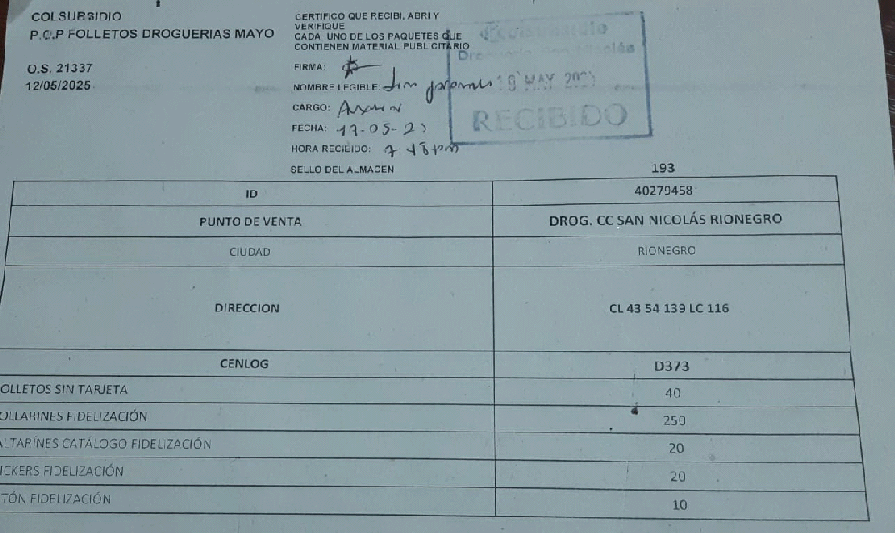 COLSUBSIDIO
P.O.P FOLLETOS DROGUERIAS MAYO
O.S. 21337
12/05/2025
CERTIFICO QUE RECIBI, ABRI Y
VERIFIQUE
CADA UNO DE LOS PAQUETES QUE
CONTIENEN MATERIAL PUBLICITARIO
FIRMA:
NOMBRE LEGIBLE
CARGO:
FECHA: 17-05-25
HORA RECIBIDO: 7 48pm
SELLO DEL ALMACEN
MAY
RECIBIDO
193
ID 40279458
PUNTO DE VENTA DROG. CC SAN NICOLÁS RIONEGRO
CIUDAD RIONEGRO
DIRECCION CL 43 54 139 LC 116
CENLOG D373
OLLETOS SIN TARJETA 40
OLLARINES FIDELIZACIÓN 250
ALTARINES CATÁLOGO FIDELIZACIÓN 20
ICKERS FIDELIZACIÓN 20
TÓN FIDELIZACIÓN 10